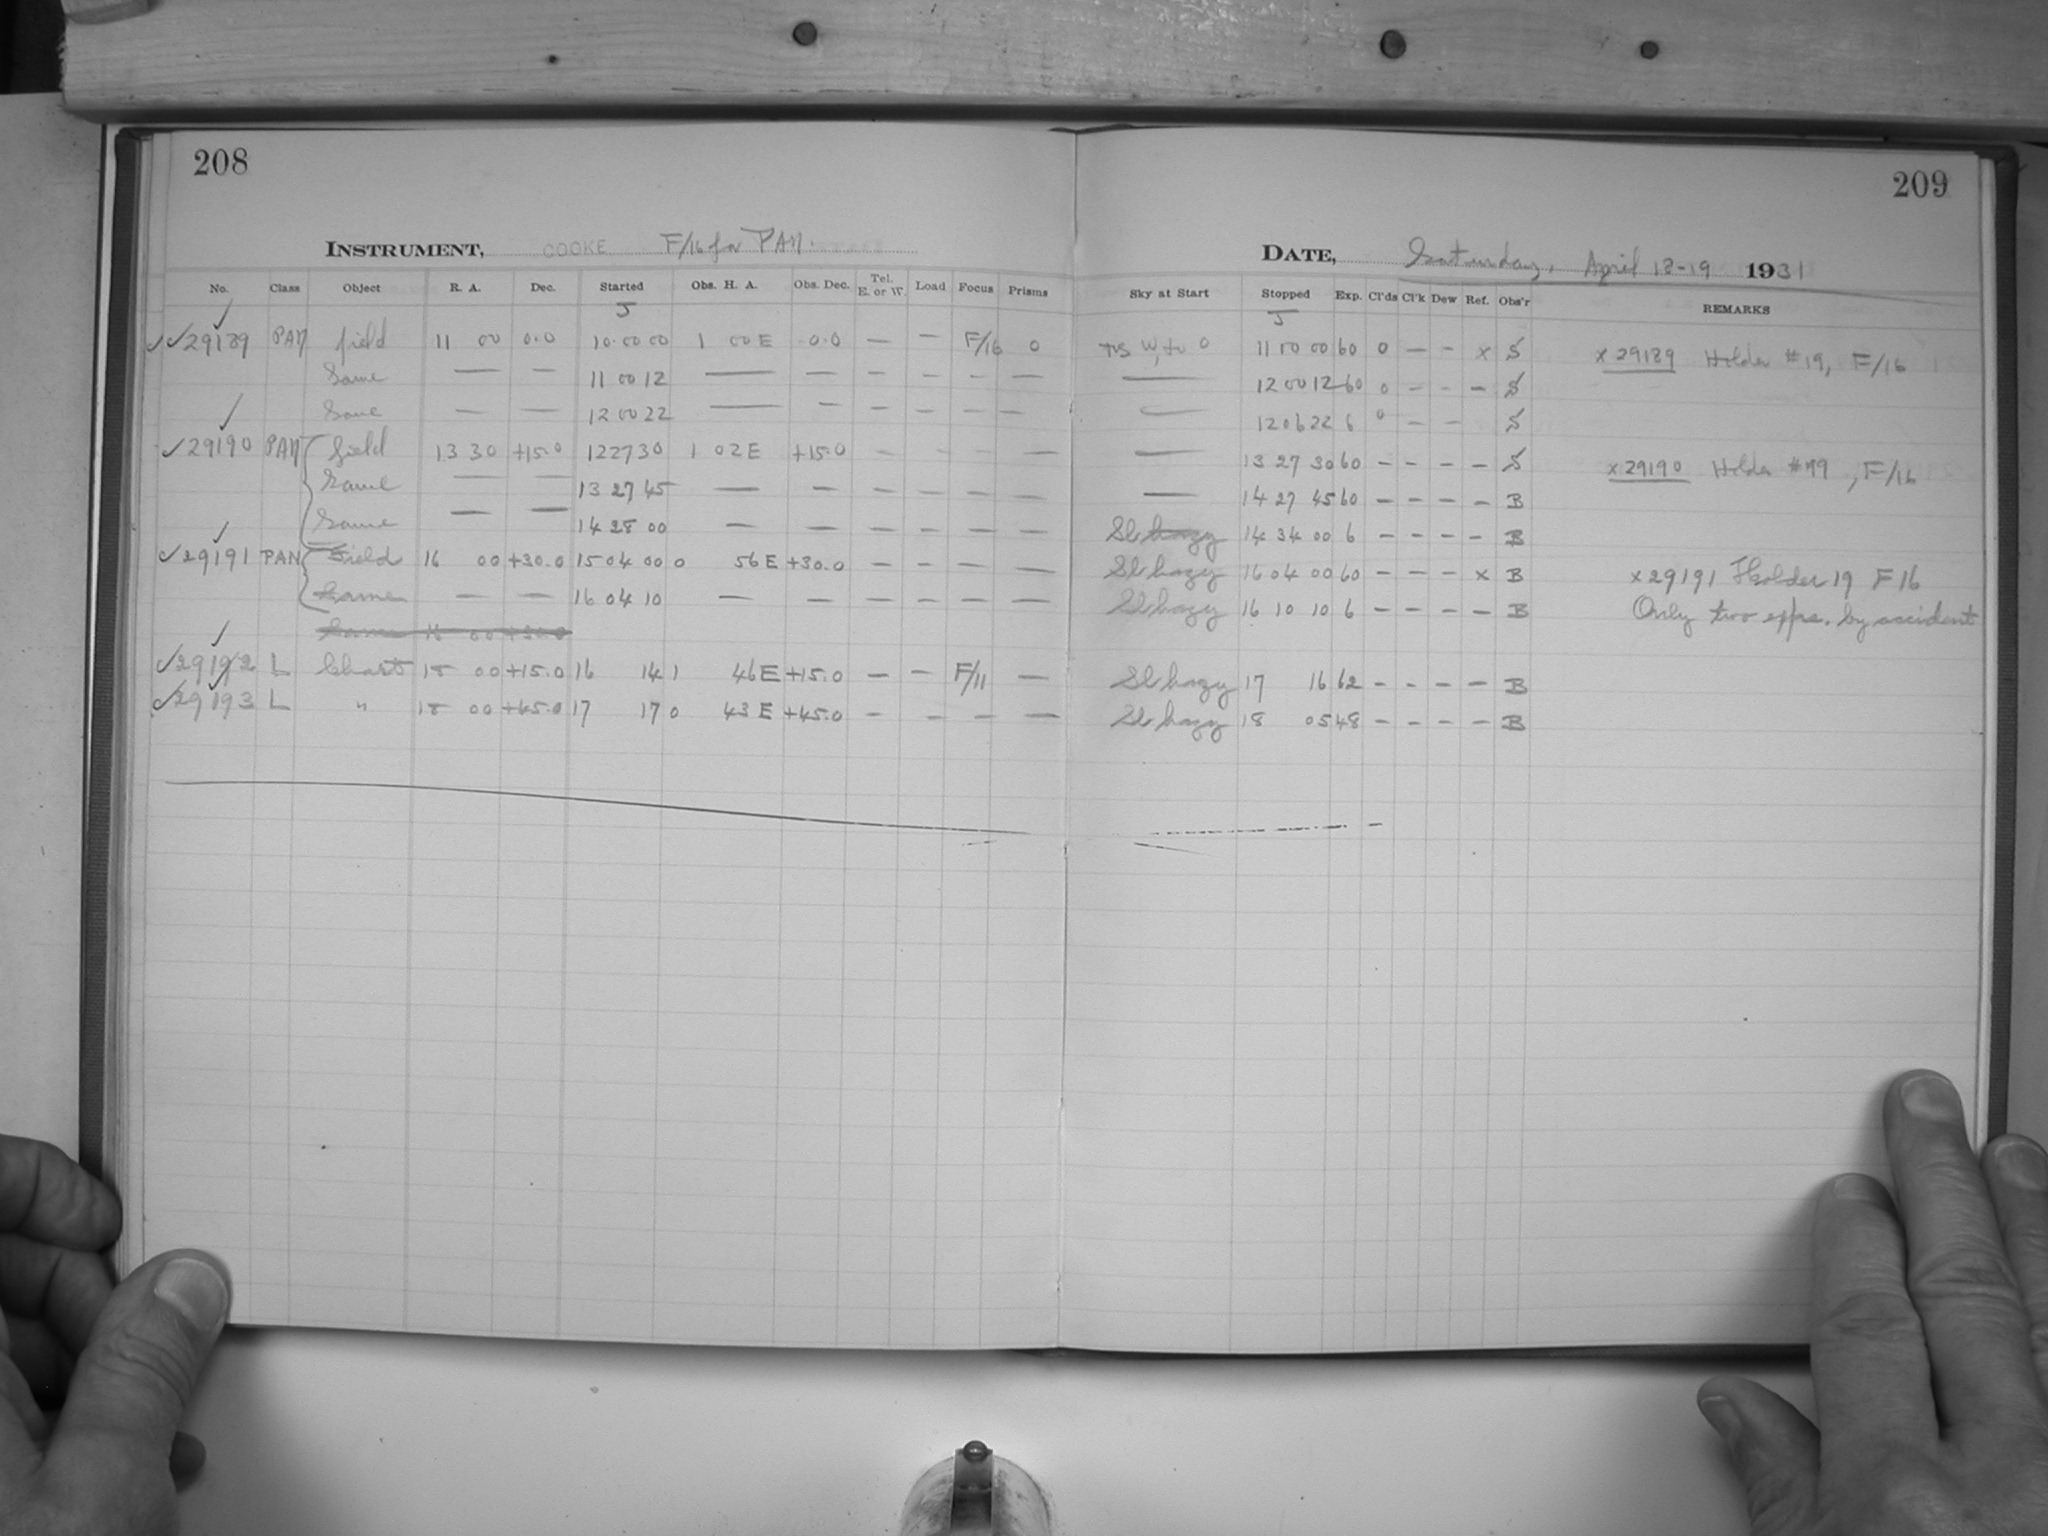 208
INSTRUMENT, COOKE F/16 for PAN.
No. Class Object R. A. Dec. Started Obs. H. A. Obs. Dec. Tel. E. or W. Load Focus Prisms
J
✓✓29189 PAN field 11 00 0.0 10 00 00 1 00 E 0.0 — — F/16 0
Same — — 11 00 12 — — — — — —
Same — — 12 00 22 — — — — — —
✓29190 PAN field 13 30 +15.0 12 27 30 1 02 E +15.0 — — — —
Same — — 13 27 45 — — — — — —
Same — — 14 28 00 — — — — — —
✓29191 PAN Field 16 00 +30.0 15 04 00 0 56 E +30.0 — — — —
Same — — 16 04 10 — — — — — —
Same 16 00 +30.0
✓29192 L Chart 18 00 +15.0 16 14 1 46 E +15.0 — — F/11 —
✓29193 L " 18 00 +45.0 17 17 0 43 E +45.0 — — — —
209
DATE, Saturday, April 18-19 1931
Sky at Start Stopped Exp. Cl'ds Cl'k Dew Ref. Obs'r REMARKS
J
W, to 0 11 00 00 60 0 — — x S x 29189 Holder #19, F/16
— 12 00 12 60 0 — — — S
— 12 06 22 6 0 — — S
— 13 27 30 60 — — — — S x 29190 Holder #79, F/16
— 14 27 45 60 — — — — B
Sl hazy 14 34 00 6 — — — — B
Sl hazy 16 04 00 60 — — — x B x 29191 Holder 19 F 16
Sl hazy 16 10 10 6 — — — — B Only two exps. by accident
Sl hazy 17 16 62 — — — — B
Sl hazy 18 05 48 — — — — B